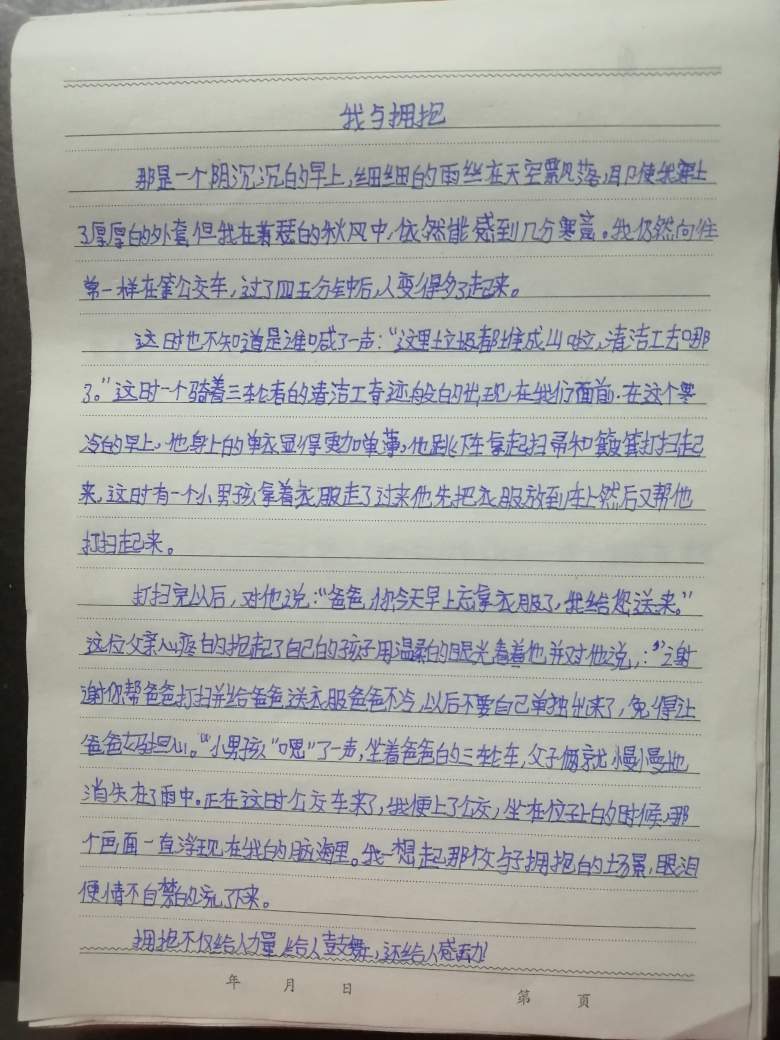 我与拥抱
那是一个阴沉沉的早上,细细的雨丝在天空飘落,即使我穿上
了厚厚的外套但我在萧瑟的秋风中,依然能感到几分寒意。我仍然向往
常一样在等公交车,过了四五分钟后,人变得多了起来。
这时也不知道是谁喊了一声:“这里垃圾都堆成山啦,清洁工去哪
了。”这时一个骑着三轮车的清洁工奇迹般的出现在我们面前.在这个寒
冷的早上,他身上的单衣显得更加单薄,他跳下车拿起扫帚和簸箕打扫起
来,这时有一个小男孩拿着衣服走了过来他先把衣服放到车上然后又帮他
打扫起来。
打扫完以后,对他说:“爸爸,你今天早上忘拿衣服了,我给您送来。”
这位父亲心疼的抱起了自己的孩子用温柔的眼光看着他并对他说,:“谢
谢你帮爸爸打扫并给爸爸送衣服爸爸不冷,以后不要自己单独出来了,免得让
爸爸妈妈担心。”小男孩“嗯”了一声,坐着爸爸的三轮车,父子俩就慢慢地
消失在了雨中.正在这时公交车来了,我便上了公交,坐在位子上的时候,那
个画面一直浮现在我的脑海里。我一想起那父与子拥抱的场景,眼泪
便情不自禁的流了下来。
拥抱不仅给人力量,给人鼓舞,还给人感动!
年 月 日
第 页